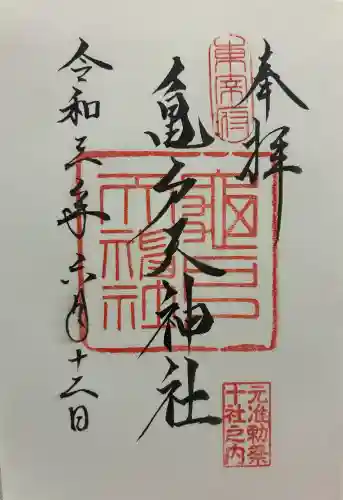 奉拝
東宰府
亀戸天神社
亀戸天神社
令和三年六月十二日
元准勅祭
十社之内